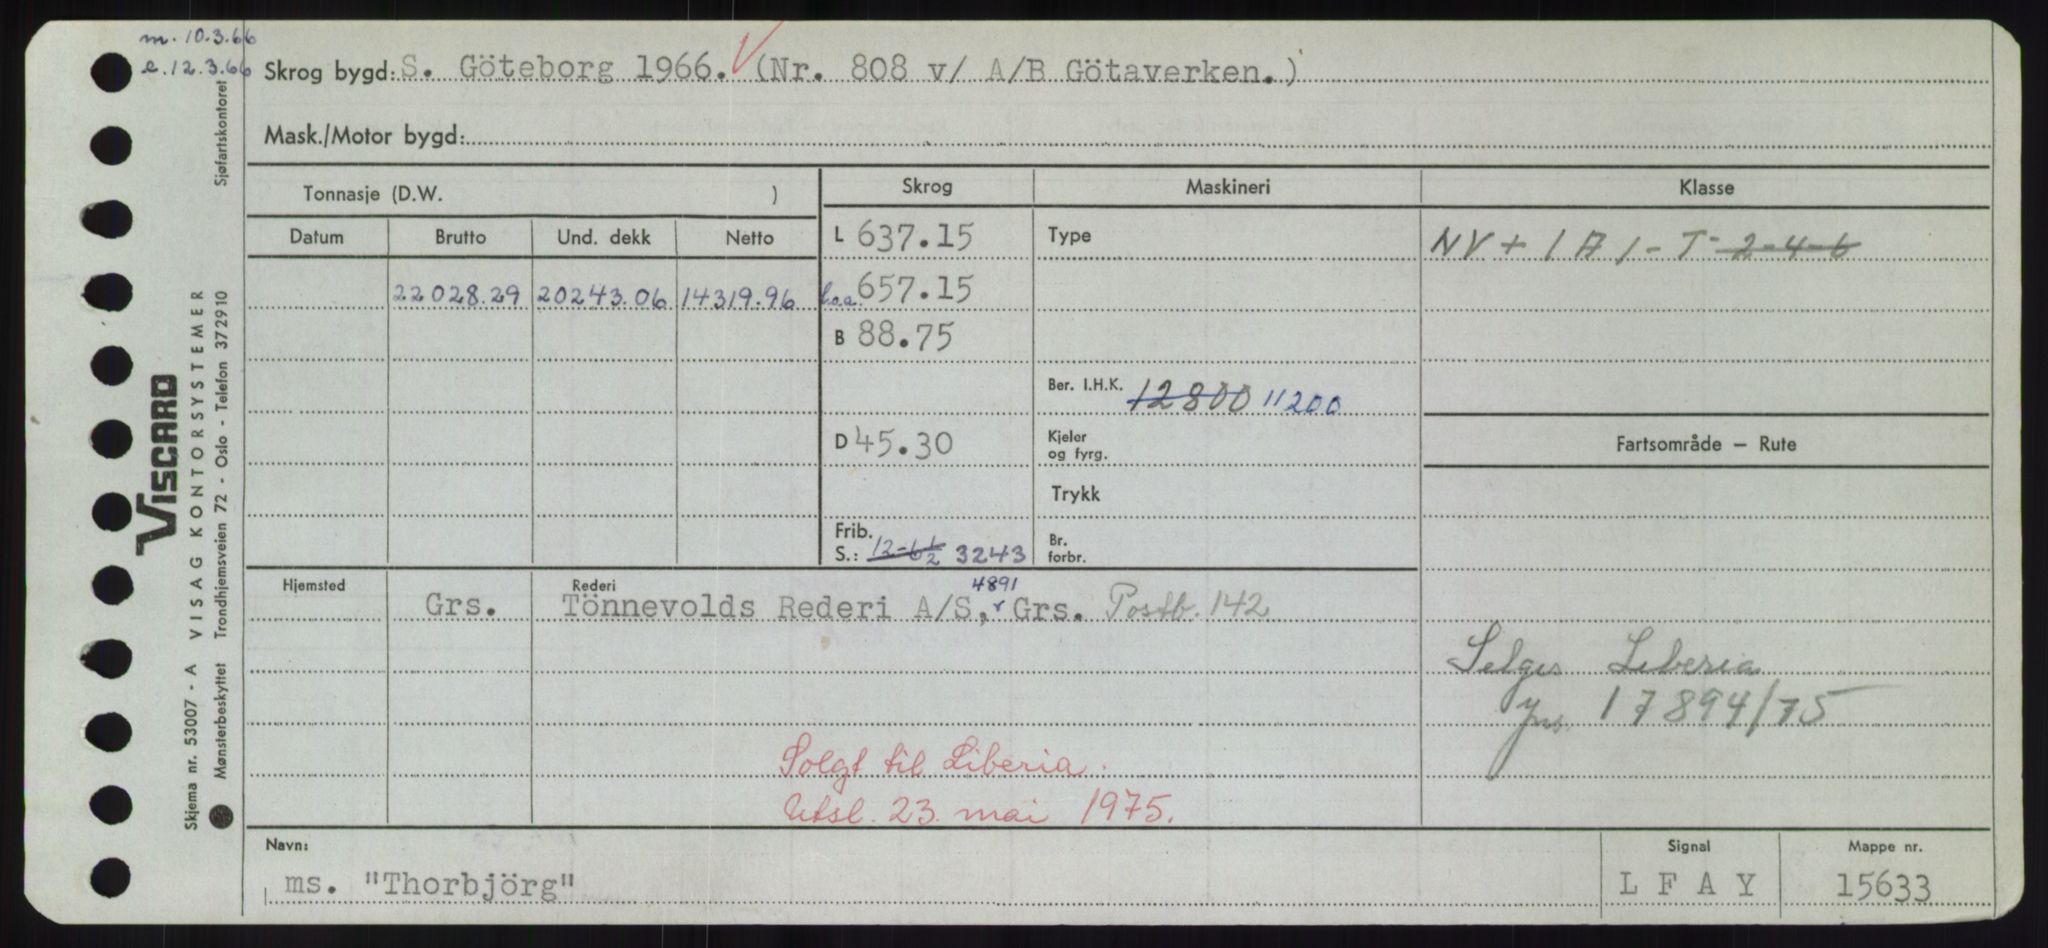 m. 10.3.66
e. 12.3.66
Skrog bygd: S. Göteborg 1966. (Nr. 808 v/ A/B Götaverken.)
Mask./Motor bygd:
Tonnasje (D.W. )
Skrog
Maskineri
Klasse
Datum
Brutto
Und. dekk
Netto
L 637.15
Type
NV + 1 A 1 - T - 2-4-6
22028.29
20243.06
14319.96
l.o.a. 657.15
B 88.75
Ber. I.H.K. 12800 11200
Fartsområde — Rute
D 45.30
Kjeler
og fyrg.
Trykk
Frib.
S.: 12-6½ 3243
Br.
forbr.
Hjemsted
Rederi
4891
Grs.
Tönnevolds Rederi A/S, Grs. Postb. 142
Selges Liberia
17894/75
Solgt til Liberia.
Utsl. 23. mai 1975.
Navn:
ms. "Thorbjörg"
Signal
L F A Y
Mappe nr.
15633
Skjema nr. 53007 - A VISAG KONTORSYSTEMER
VISCARD
Mønsterbeskyttet Trondhjemsveien 72 - Oslo - Telefon 372910 Sjøfartskontoret